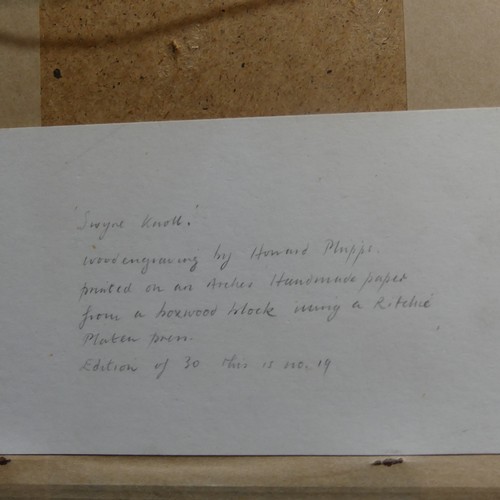 'Swyre Knoll.'
Wood engraving by Howard Phipps.
printed on an Arches Handmade paper
from a boxwood block using a Ritchie
Platen press.
Edition of 30 this is no. 19